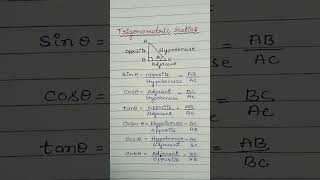 Trigonometric ratios
A
opposite
Hypotenuse
B
θ
C
Adjacent
sinθ = opposite / Hypotenuse = AB / AC
cosθ = Adjacent / Hypotenuse = BC / AC
tanθ = opposite / Adjacent = AB / BC
Cosecθ = Hypotenuse / opposite = AC / AB
Secθ = Hypotenuse / Adjacent = AC / BC
Cotθ = Adjacent / opposite = BC / AB